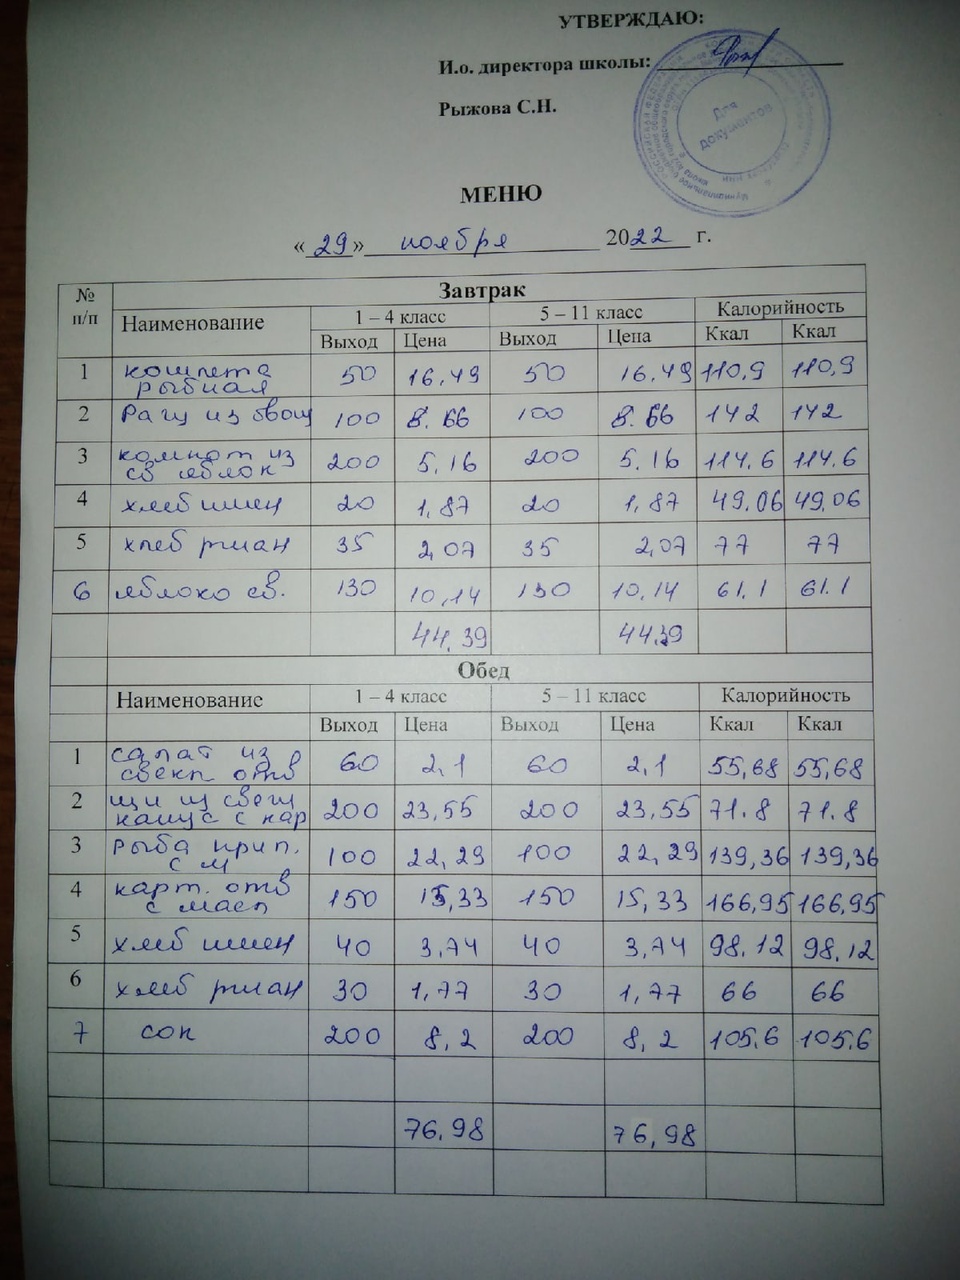 УТВЕРЖДАЮ:
И.о. директора школы:
Рыжова С.Н.
Для
документов
МЕНЮ
«29» ноября 2022 г.
№ п/п Завтрак
Наименование 1 – 4 класс 5 – 11 класс Калорийность
Выход Цена Выход Цена Ккал Ккал
1 котлета рыбная 50 16,49 50 16,49 110,9 110,9
2 Рагу из овощ 100 8.66 100 8.66 142 142
3 компот из св яблок 200 5,16 200 5,16 114.6 114.6
4 хлеб пшен 20 1,87 20 1,87 49,06 49,06
5 хлеб ржан 35 2,07 35 2,07 77 77
6 яблоко св. 130 10,14 130 10,14 61.1 61.1
44,39 44,39
Обед
Наименование 1 – 4 класс 5 – 11 класс Калорийность
Выход Цена Выход Цена Ккал Ккал
1 салат из свекл отв 60 2,1 60 2,1 55,68 55,68
2 щи из свеж капус с кар 200 23,55 200 23,55 71.8 71.8
3 рыба прип. с м 100 22,29 100 22,29 139,36 139,36
4 карт. отв с масл 150 15,33 150 15,33 166,95 166,95
5 хлеб пшен 40 3,74 40 3,74 98,12 98,12
6 хлеб ржан 30 1,77 30 1,77 66 66
7 сок 200 8,2 200 8,2 105.6 105.6
76,98 76,98